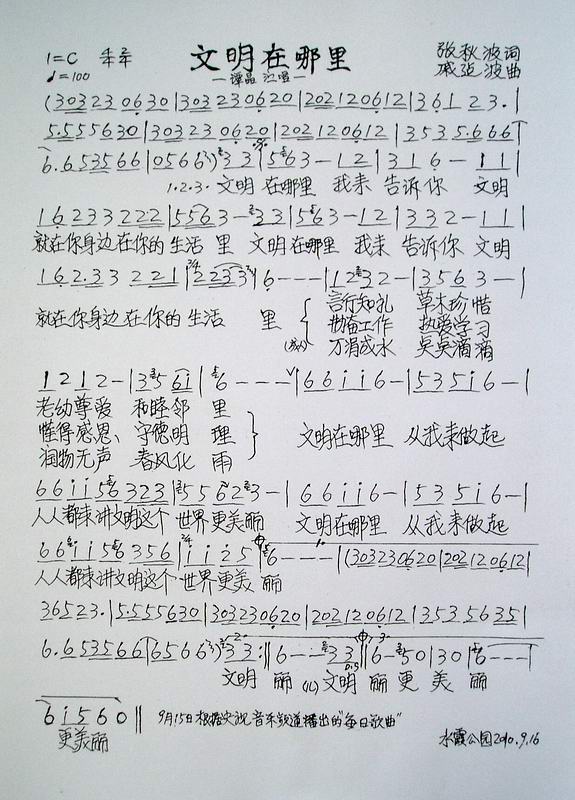 文明在哪里
1=C 4/4 2/4
♩=100
—谭晶 演唱—
张秋波 词
戚建波 曲
(303230630|303230620|202120612|36123.|
5.5555630|303230620|202120612|3535.666|
6.6535566|0566)33|563–12|316–11|
1.2.3. 文明 在哪里 我来 告诉你 文明
16233222|5563–33|563–12|332–11|
就在你身边在你的生活 里 文明在哪里 我来 告诉你 文明
162.33221|2233|6–––|1232–|3563–|
就在你身边在你的生活 里
言行知礼 草木珍惜
勤奋工作 热爱学习
万涓成水 点点滴滴
1212–|3561|6–––|6611 6–|53516–|
老幼尊爱 和睦邻 里
懂得感恩、守德明 理
润物无声 春风化 雨
文明在哪里 从我来做起
661156323|55623–|66116–|53516–|
人人都来讲文明这个 世界更美丽 文明在哪里 从我来做起
661156356|1125|6–––|(303230620|202120612|
人人都来讲文明这个 世界更美 丽
36523.|5.5555630|303230620|202120612|3535635|
6.6535566|65666)33:‖6––33‖6–50|30|6–––|
文明 丽 (儿) 文明 丽 更 美 丽
61560‖
更美丽
9月15日根据央视音乐频道播出的"每日歌曲"
水霞公园2010.9.16